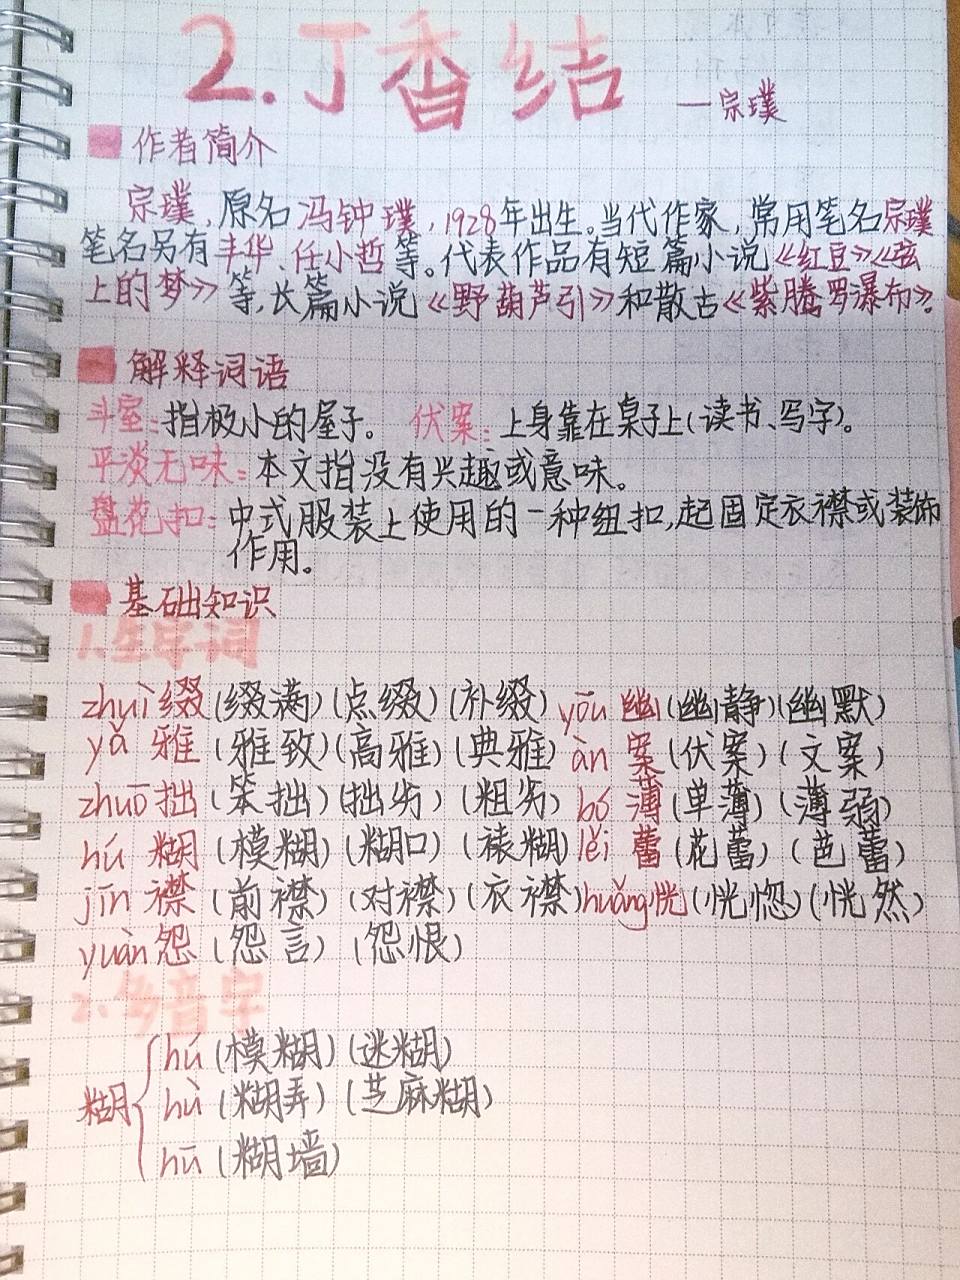 2.丁香结
—宗璞
作者简介
宗璞,原名冯钟璞,1928年出生。当代作家,常用笔名宗璞
笔名另有丰华、任小哲等。代表作品有短篇小说《红豆》《弦
上的梦》等,长篇小说《野葫芦引》和散古《紫腾罗瀑布》。
解释词语
斗室:指极小的屋子。 伏案:上身靠在桌子上(读书、写字)。
平淡无味:本文指没有兴趣或意味。
盘花扣:中式服装上使用的一种纽扣,起固定衣襟或装饰
作用。
基础知识
1.生字词
zhuì缀(缀满)(点缀)(补缀) yōu 幽(幽静)(幽默)
yǎ 雅 (雅致)(高雅)(典雅) àn 案(伏案)(文案)
zhuō拙(笨拙)(拙劣)(粗劣) bó 薄(单薄)(薄弱)
hú 糊 (模糊)(糊口)(裱糊) lěi 蕾(花蕾)(芭蕾)
jīn 襟 (前襟)(对襟)(衣襟) huǎng恍(恍惚)(恍然)
yuàn怨 (怨言)(怨恨)
2.多音字
糊
hú (模糊)(迷糊)
hù (糊弄)(芝麻糊)
hū (糊墙)